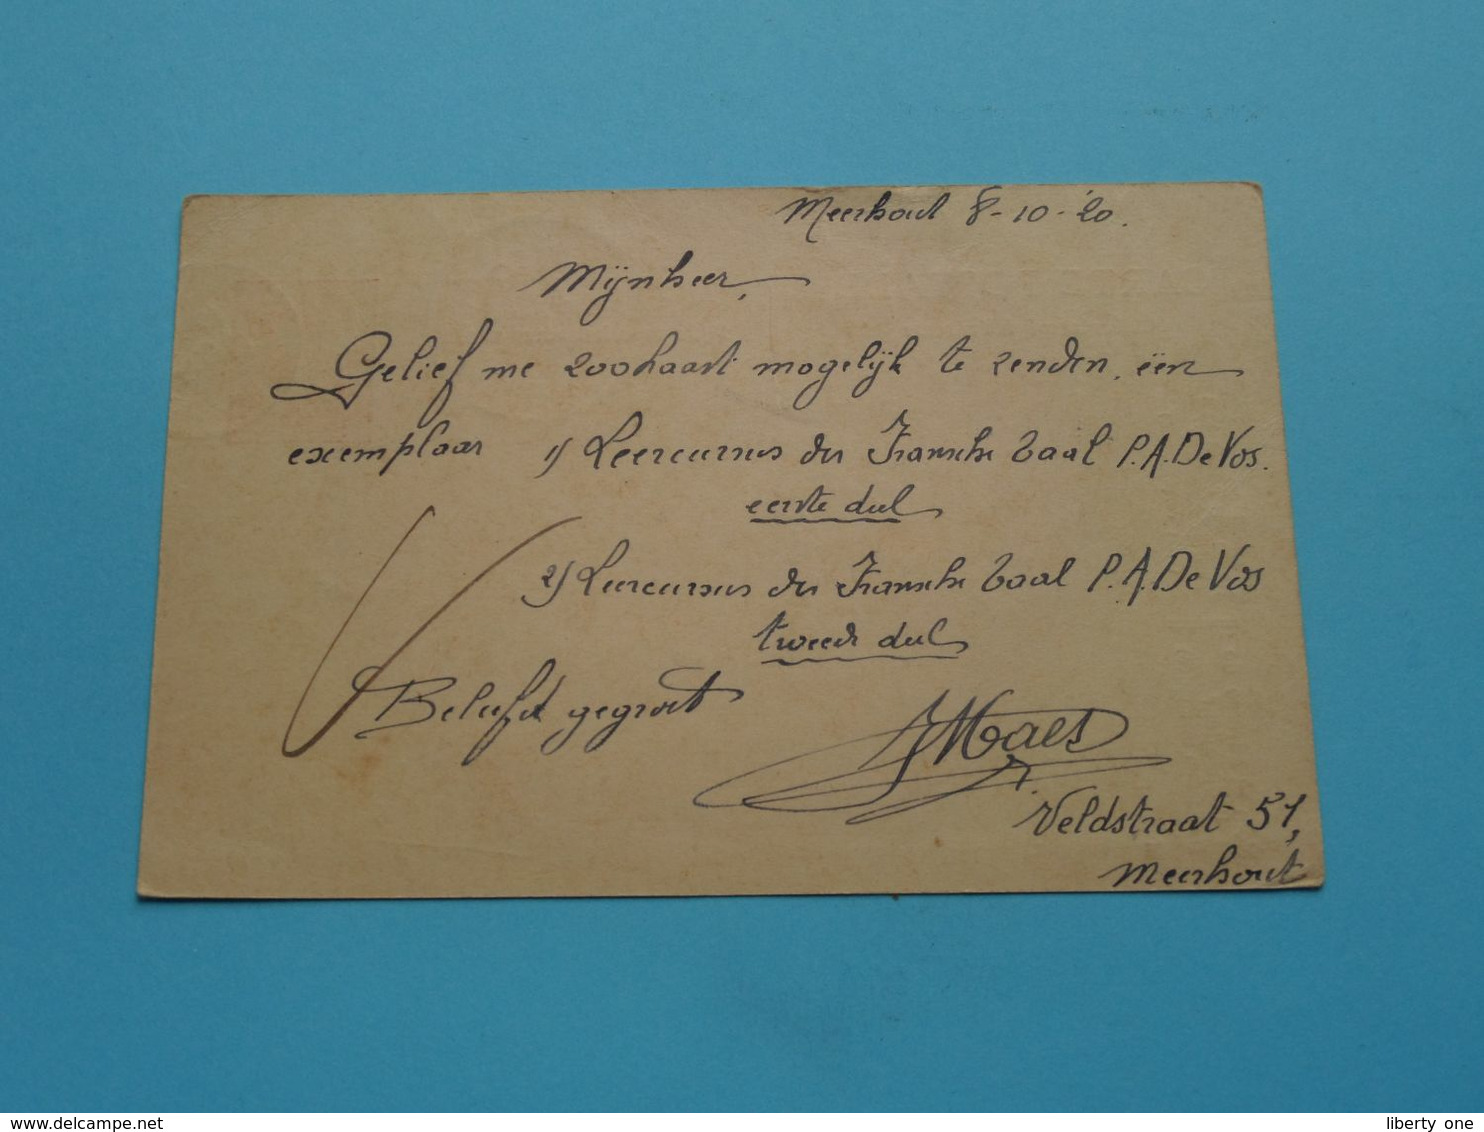 Meerhout 8-10-'20.
Mijnheer,
Gelief me zoohaast mogelijk te zenden, één
exemplaar 1/ Leercursus der Fransche taal P.A. De Vos.
eerste deel
2/ Leercursus der Fransche taal P.A. De Vos
tweede deel
Beleefd gegroet
JMaes
Veldstraat 51,
Meerhout
www.delcampe.net
liberty one